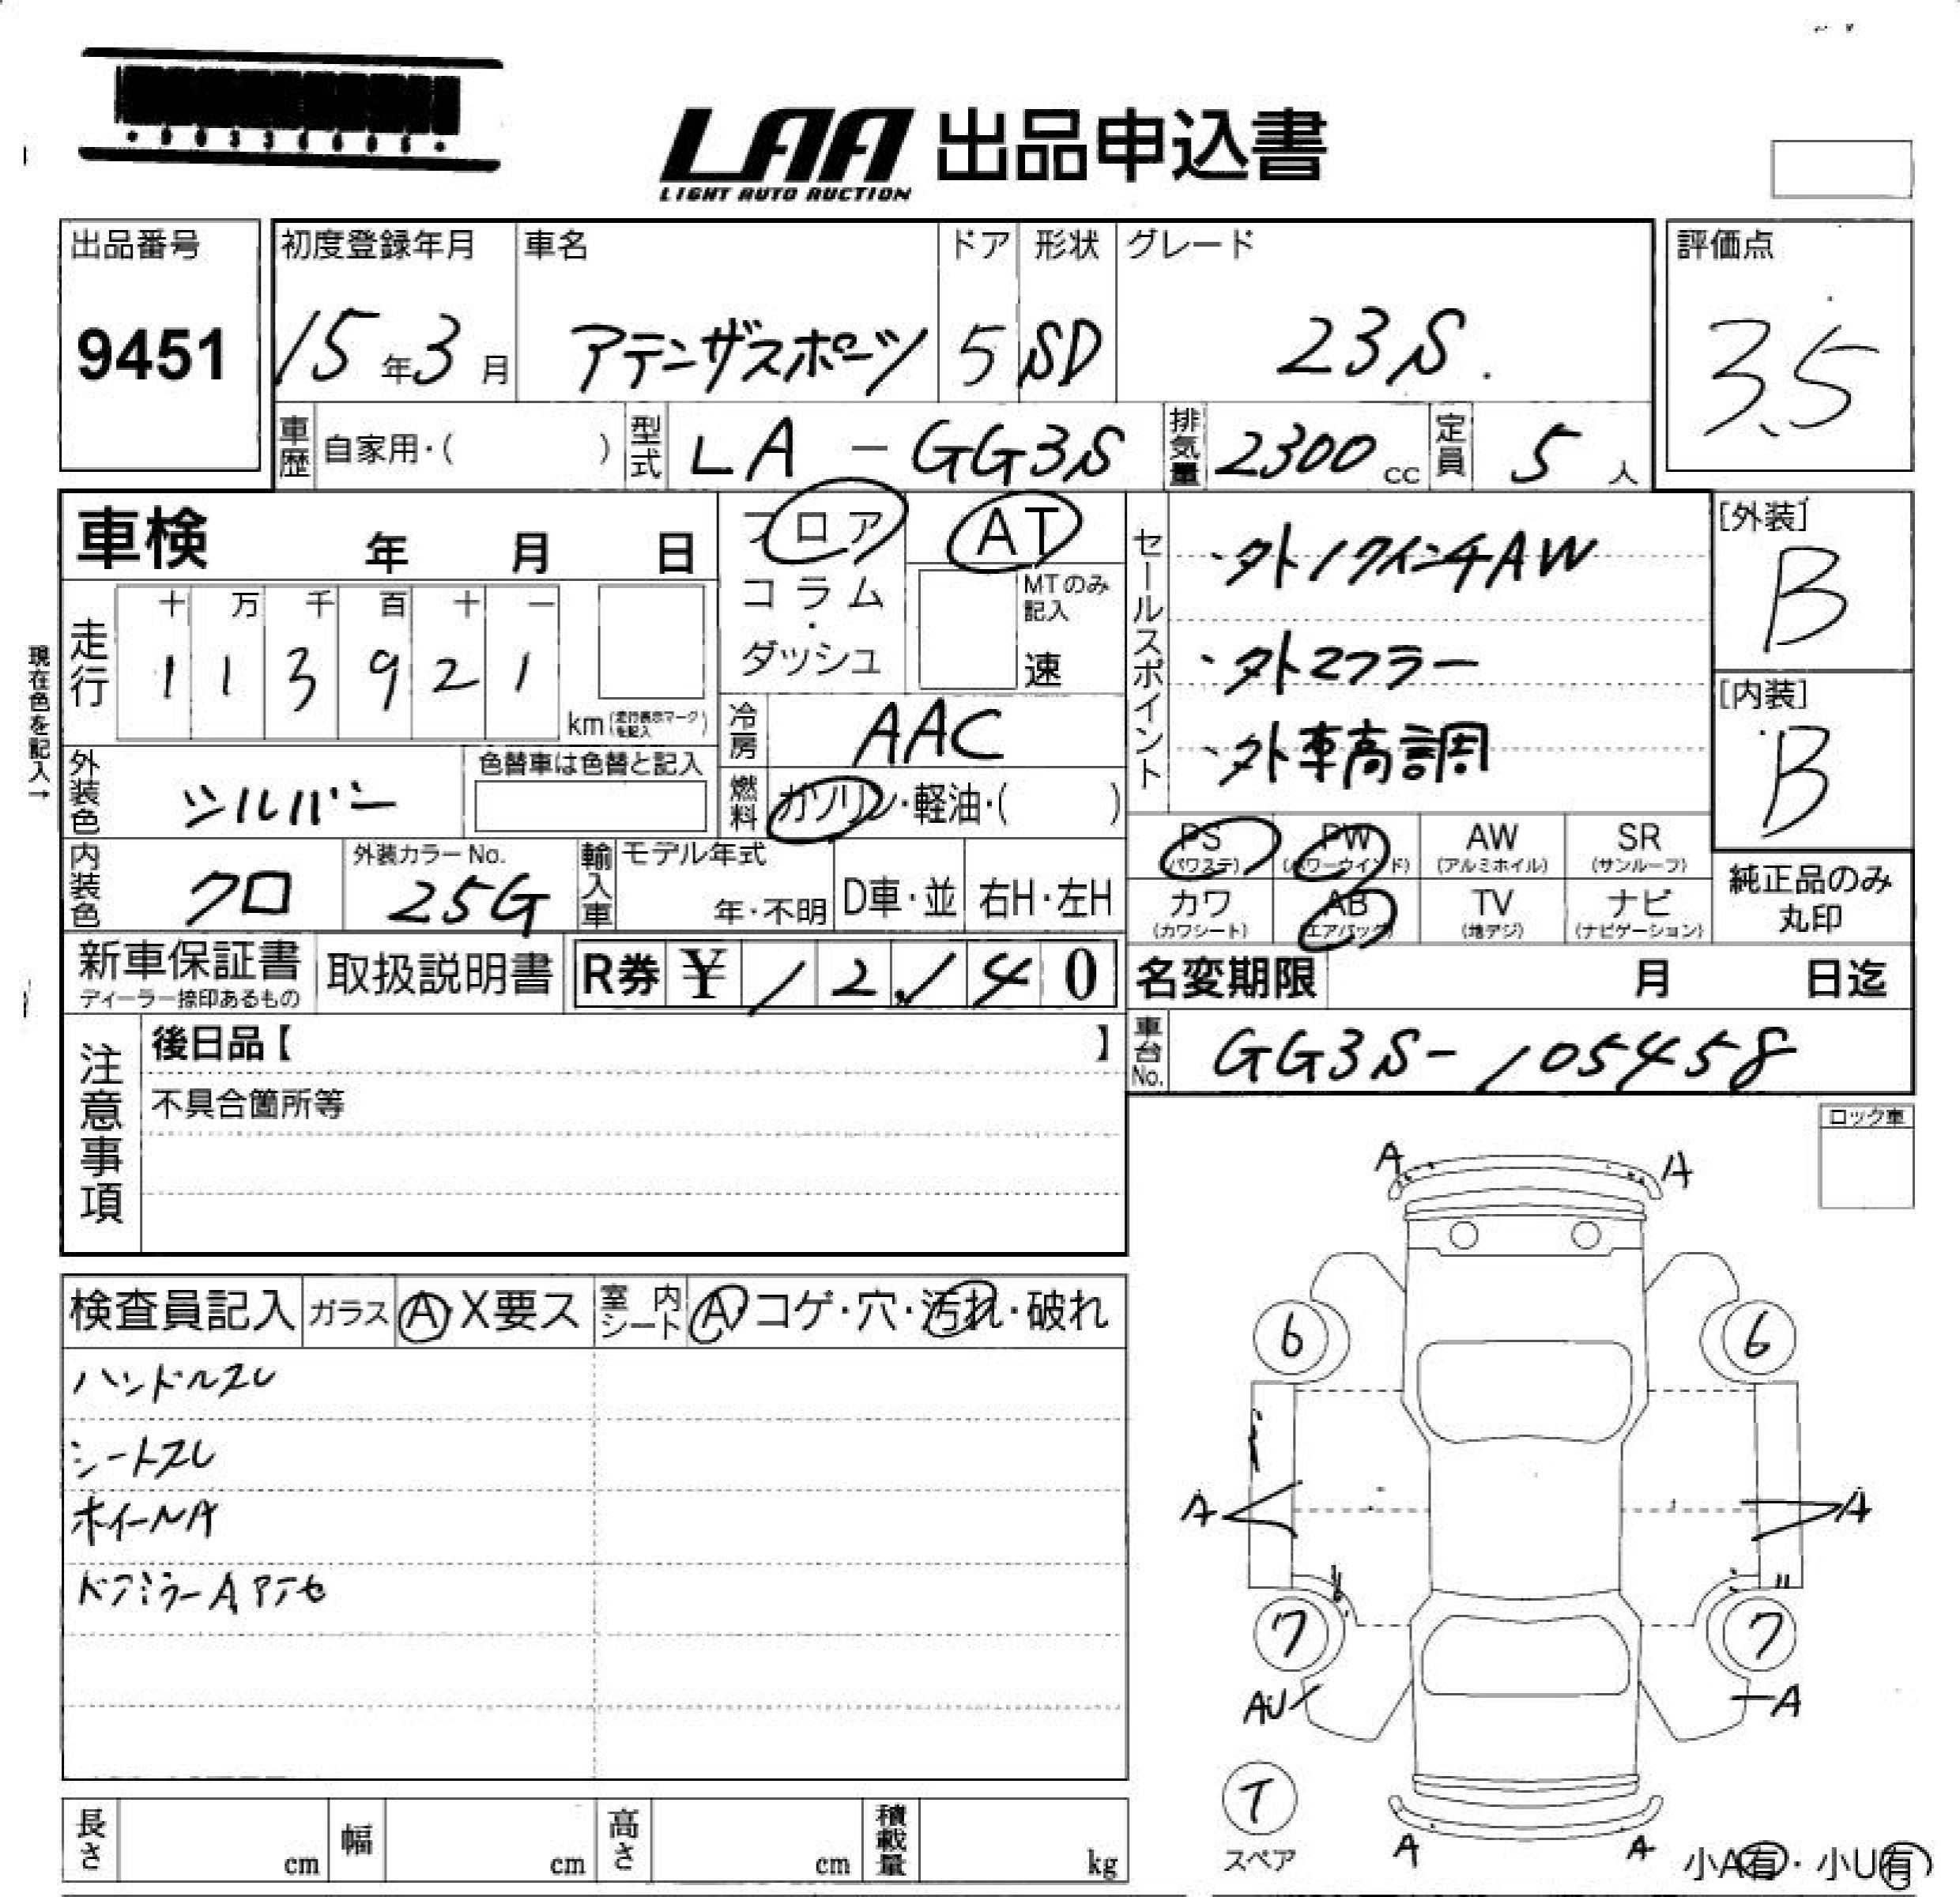 LAA 出品申込書
LIGHT AUTO AUCTION
出品番号 初度登録年月 車名 ドア 形状 グレード 評価点
9451 15年3月 アテンザスポーツ 5 SD 23S. 3.5
車歴 自家用・( ) 型式 LA-GG3S 排気量 2300cc 定員 5人
車検 年 月 日 フロア AT セールスポイント ・外17インチAW [外装]
B
コラム・ MTのみ記入
ダッシュ 速 ・外マフラー
現在色を記入→
走行 十 万 千 百 十 一
1 1 3 9 2 1 km(走行表示マークを記入)
[内装]
B
冷房 AAC ・外車高調
外装色 シルバー 色替車は色替と記入 燃料 ガソリン・軽油・( )
PS PW AW SR
(パワステ) (パワーウインド) (アルミホイル) (サンルーフ)
内装色 クロ 外装カラーNo. 25G 輸入車 モデル年式 年・不明 D車・並 右H・左H
カワ AB TV ナビ
(カワシート) (エアバック) (地デジ) (ナビゲーション)
純正品のみ
丸印
新車保証書 取扱説明書 R券 ¥ 12,140 名変期限 月 日迄
ディーラー捺印あるもの
注意事項 後日品【 】 車台No. GG3S-105458
不具合箇所等
ロック車
A A
検査員記入 ガラス A・X要ス 室内シート A・コゲ・穴・汚れ・破れ
ハンドルスレ
シートスレ
ホイールA
ドアミラーAアテセ
6 6
A A
7 7
AU A
T
スペア
A A
小A有・小U有
長さ cm 幅 cm 高さ cm 積載量 kg